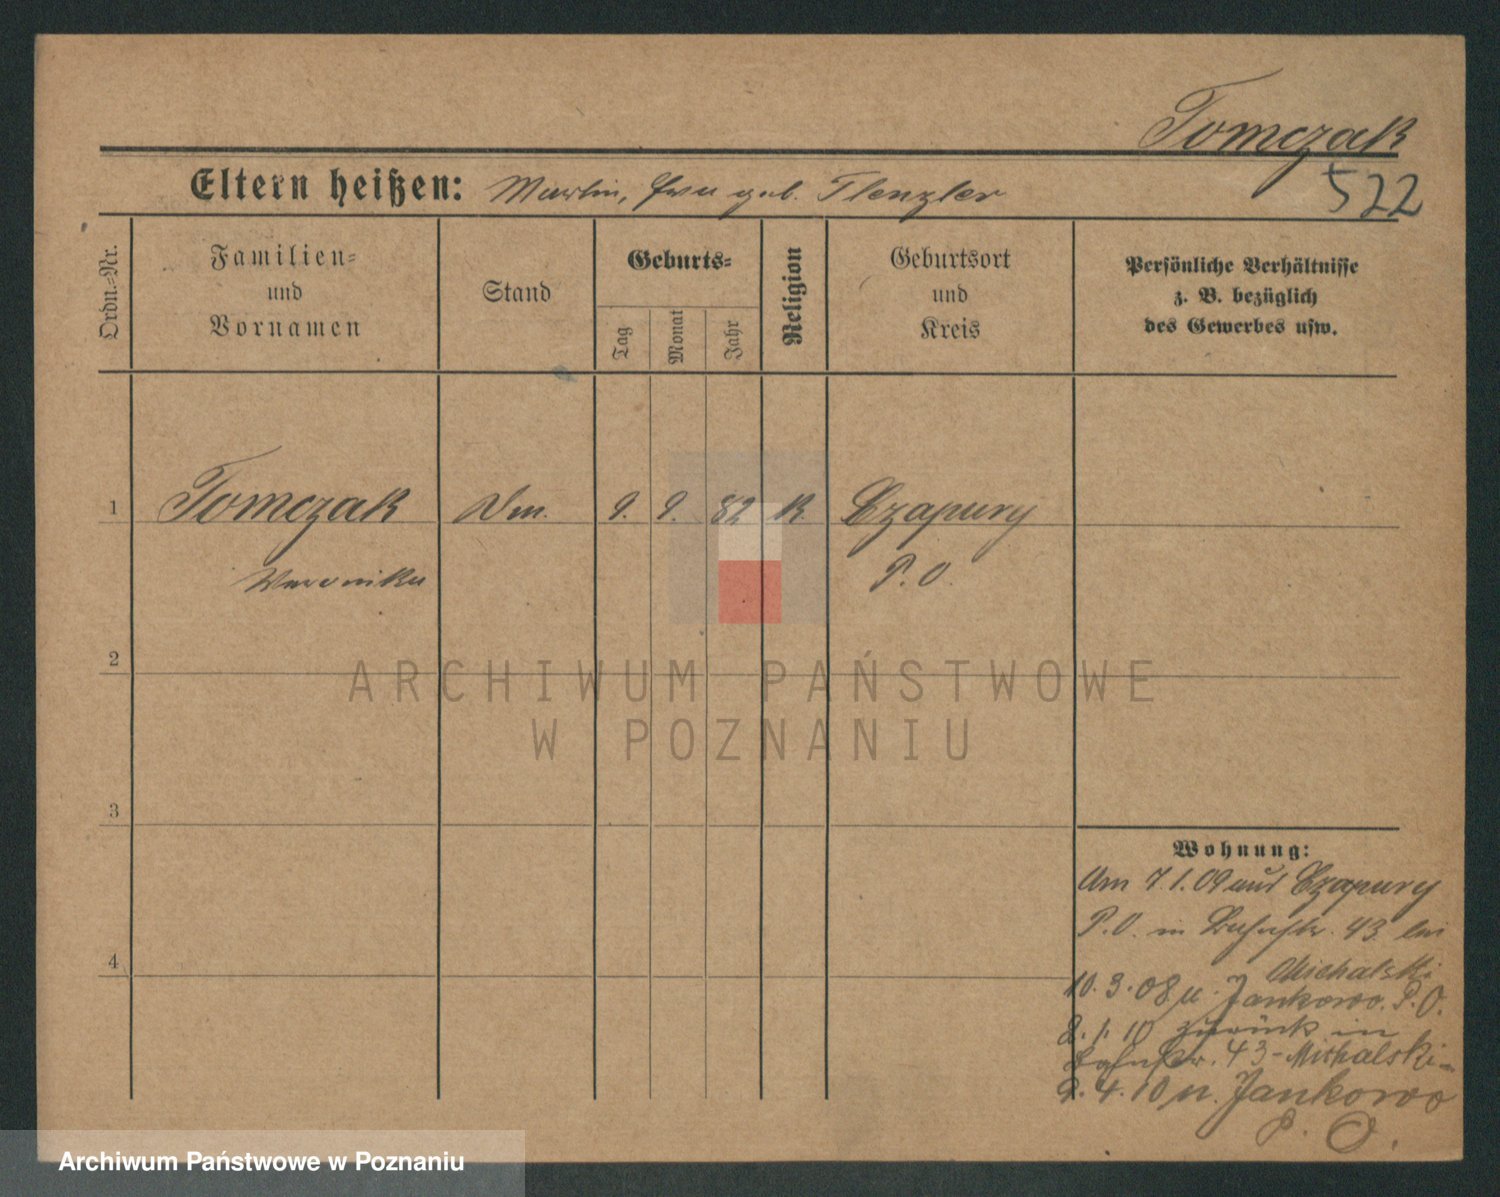 Tomczak
522
Eltern heißen: Martin, Eva geb. Flenzler
Ordn.=Nr.
Familien=
und
Vornamen
Stand
Geburts=
Tag
Monat
Jahr
Religion
Geburtsort
und
Kreis
Persönliche Verhältnisse
z. B. bezüglich
des Gewerbes usw.
1 Tomczak 9. 9. 82 k. Czapury
Veronika P. O.
2
3
4
Wohnung:
Am 7.1.09 aus Czapury
P.O. in 43 bei
Michalski
10.3.08 n. Jankowo. P.O.
8.1.10 zurück in
43 - Michalski -
9.4.10 n. Jankowo
P. O.
ARCHIWUM PAŃSTWOWE
W POZNANIU
Archiwum Państwowe w Poznaniu